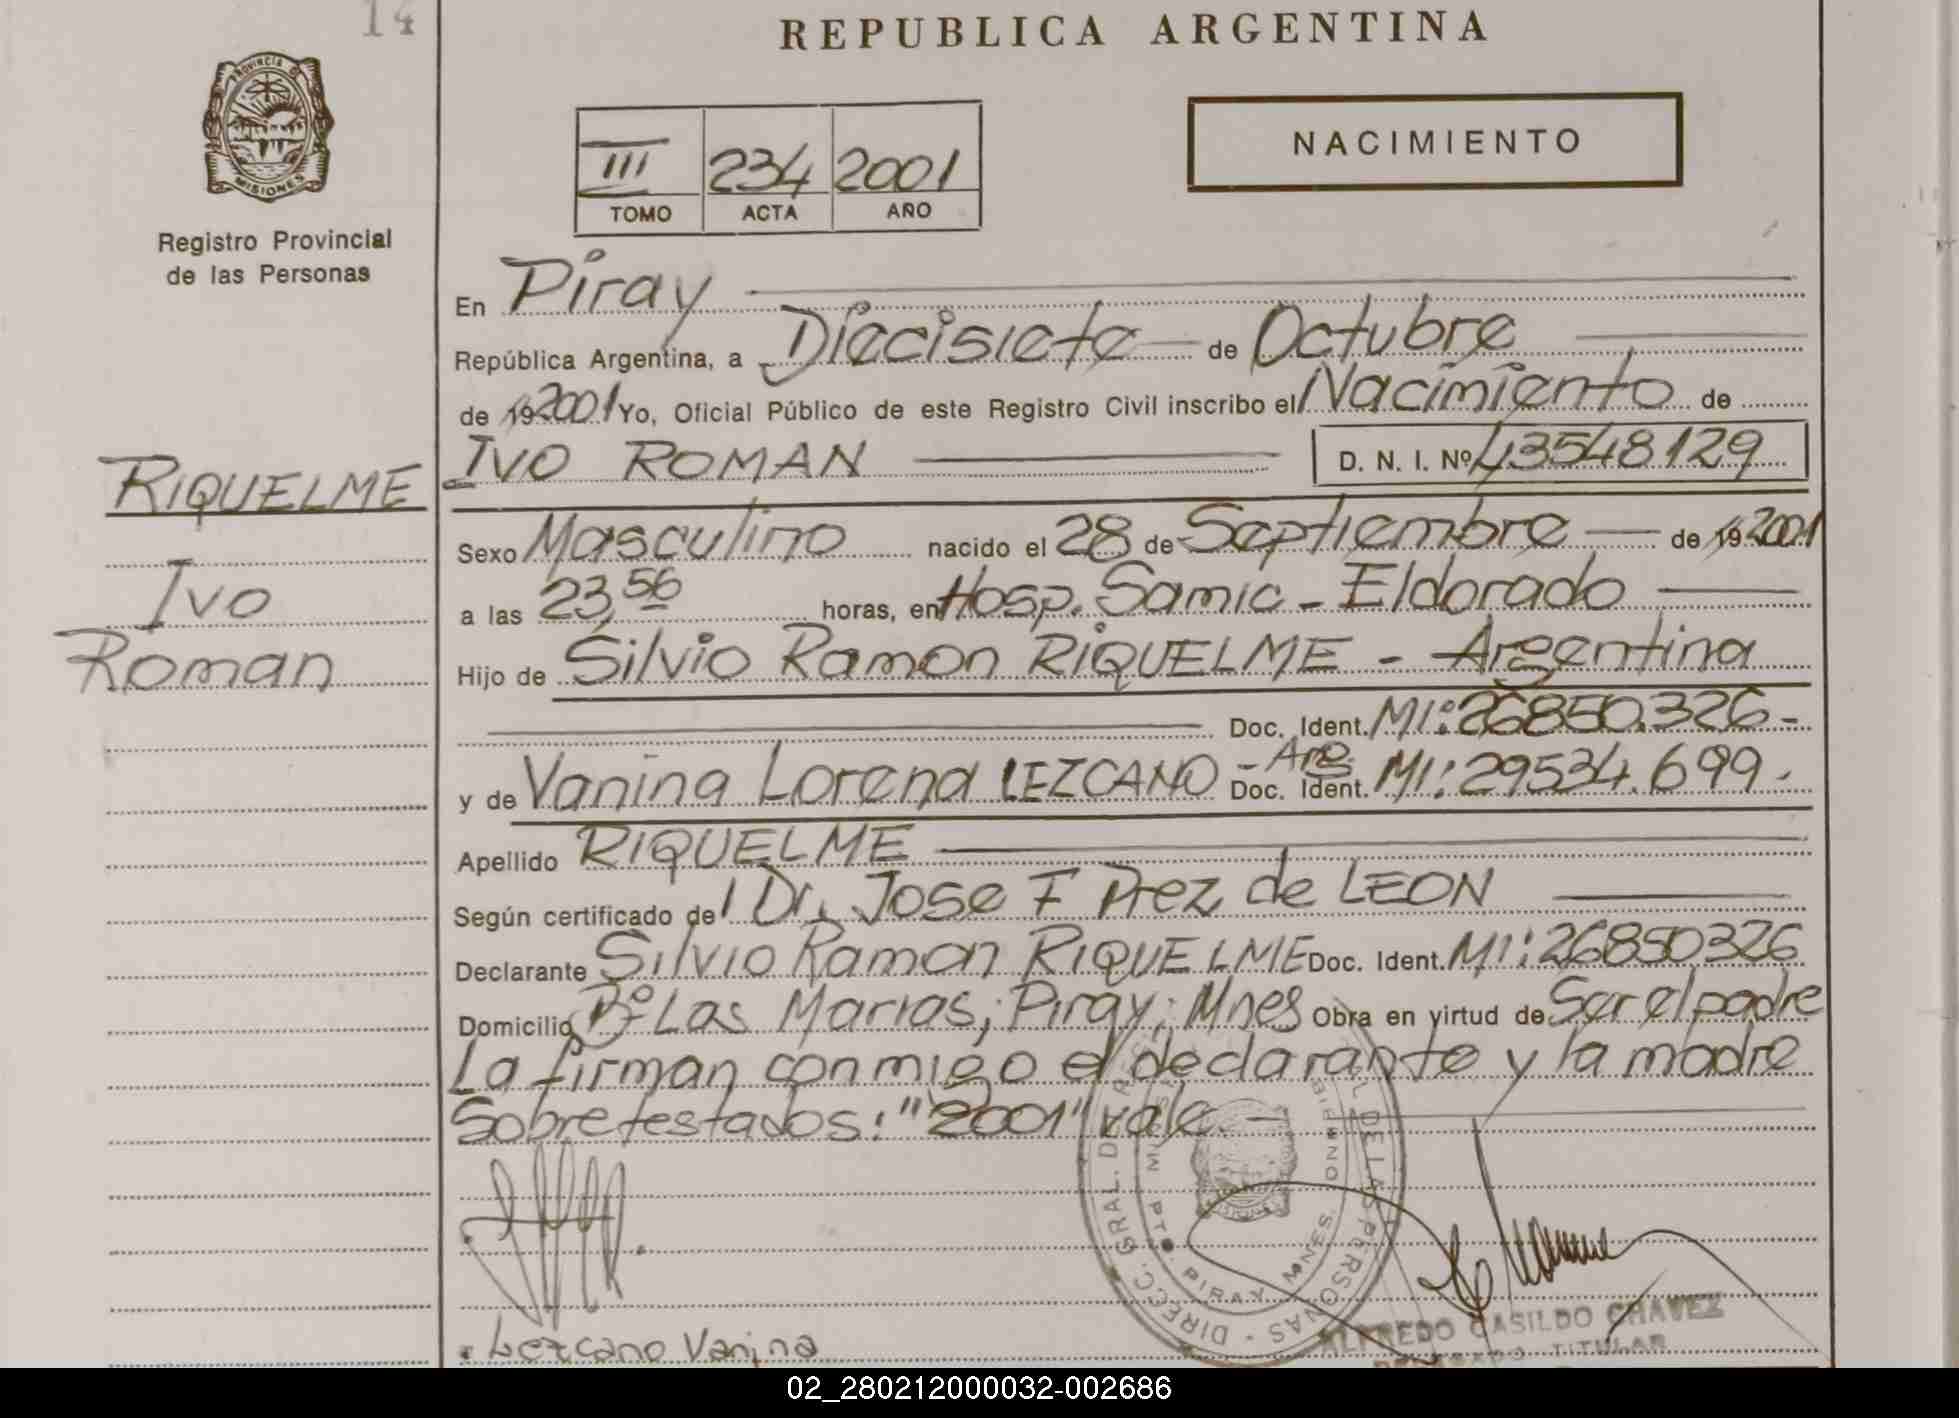 14
REPUBLICA ARGENTINA
PROVINCIA DE
MISIONES
Registro Provincial
de las Personas
III 234 2001
TOMO ACTA AÑO
NACIMIENTO
En Piray
República Argentina, a Diecisiete de Octubre
de 19 2001 Yo, Oficial Público de este Registro Civil inscribo el Nacimiento de
IVO ROMAN D. N. I. Nº 43548129
RIQUELME
Ivo
Roman
Sexo Masculino nacido el 28 de Septiembre de 19 2001
a las 23,56 horas, en Hosp. Samic - Eldorado
Hijo de Silvio Ramon RIQUELME - Argentina
Doc. Ident. MI: 26850.326-
y de Vanina Lorena LEZCANO - Arg. Doc. Ident. MI: 29534.699.
Apellido RIQUELME
Según certificado del Dr. Jose F Prez de LEON
Declarante Silvio Ramon RIQUELME Doc. Ident. MI: 26850326
Domicilio Bº Las Marias; Piray; Mnes Obra en virtud de Ser el padre
La firman conmigo el declarante y la madre
Sobretestados: "2001" vale.-
DIRECC. GRAL. DEL DE LAS PERSONAS
PTO. PIRAY MNES.
Lezcano Vanina
ALFREDO CASILDO CHAVEZ
TITULAR
02_280212000032-002686